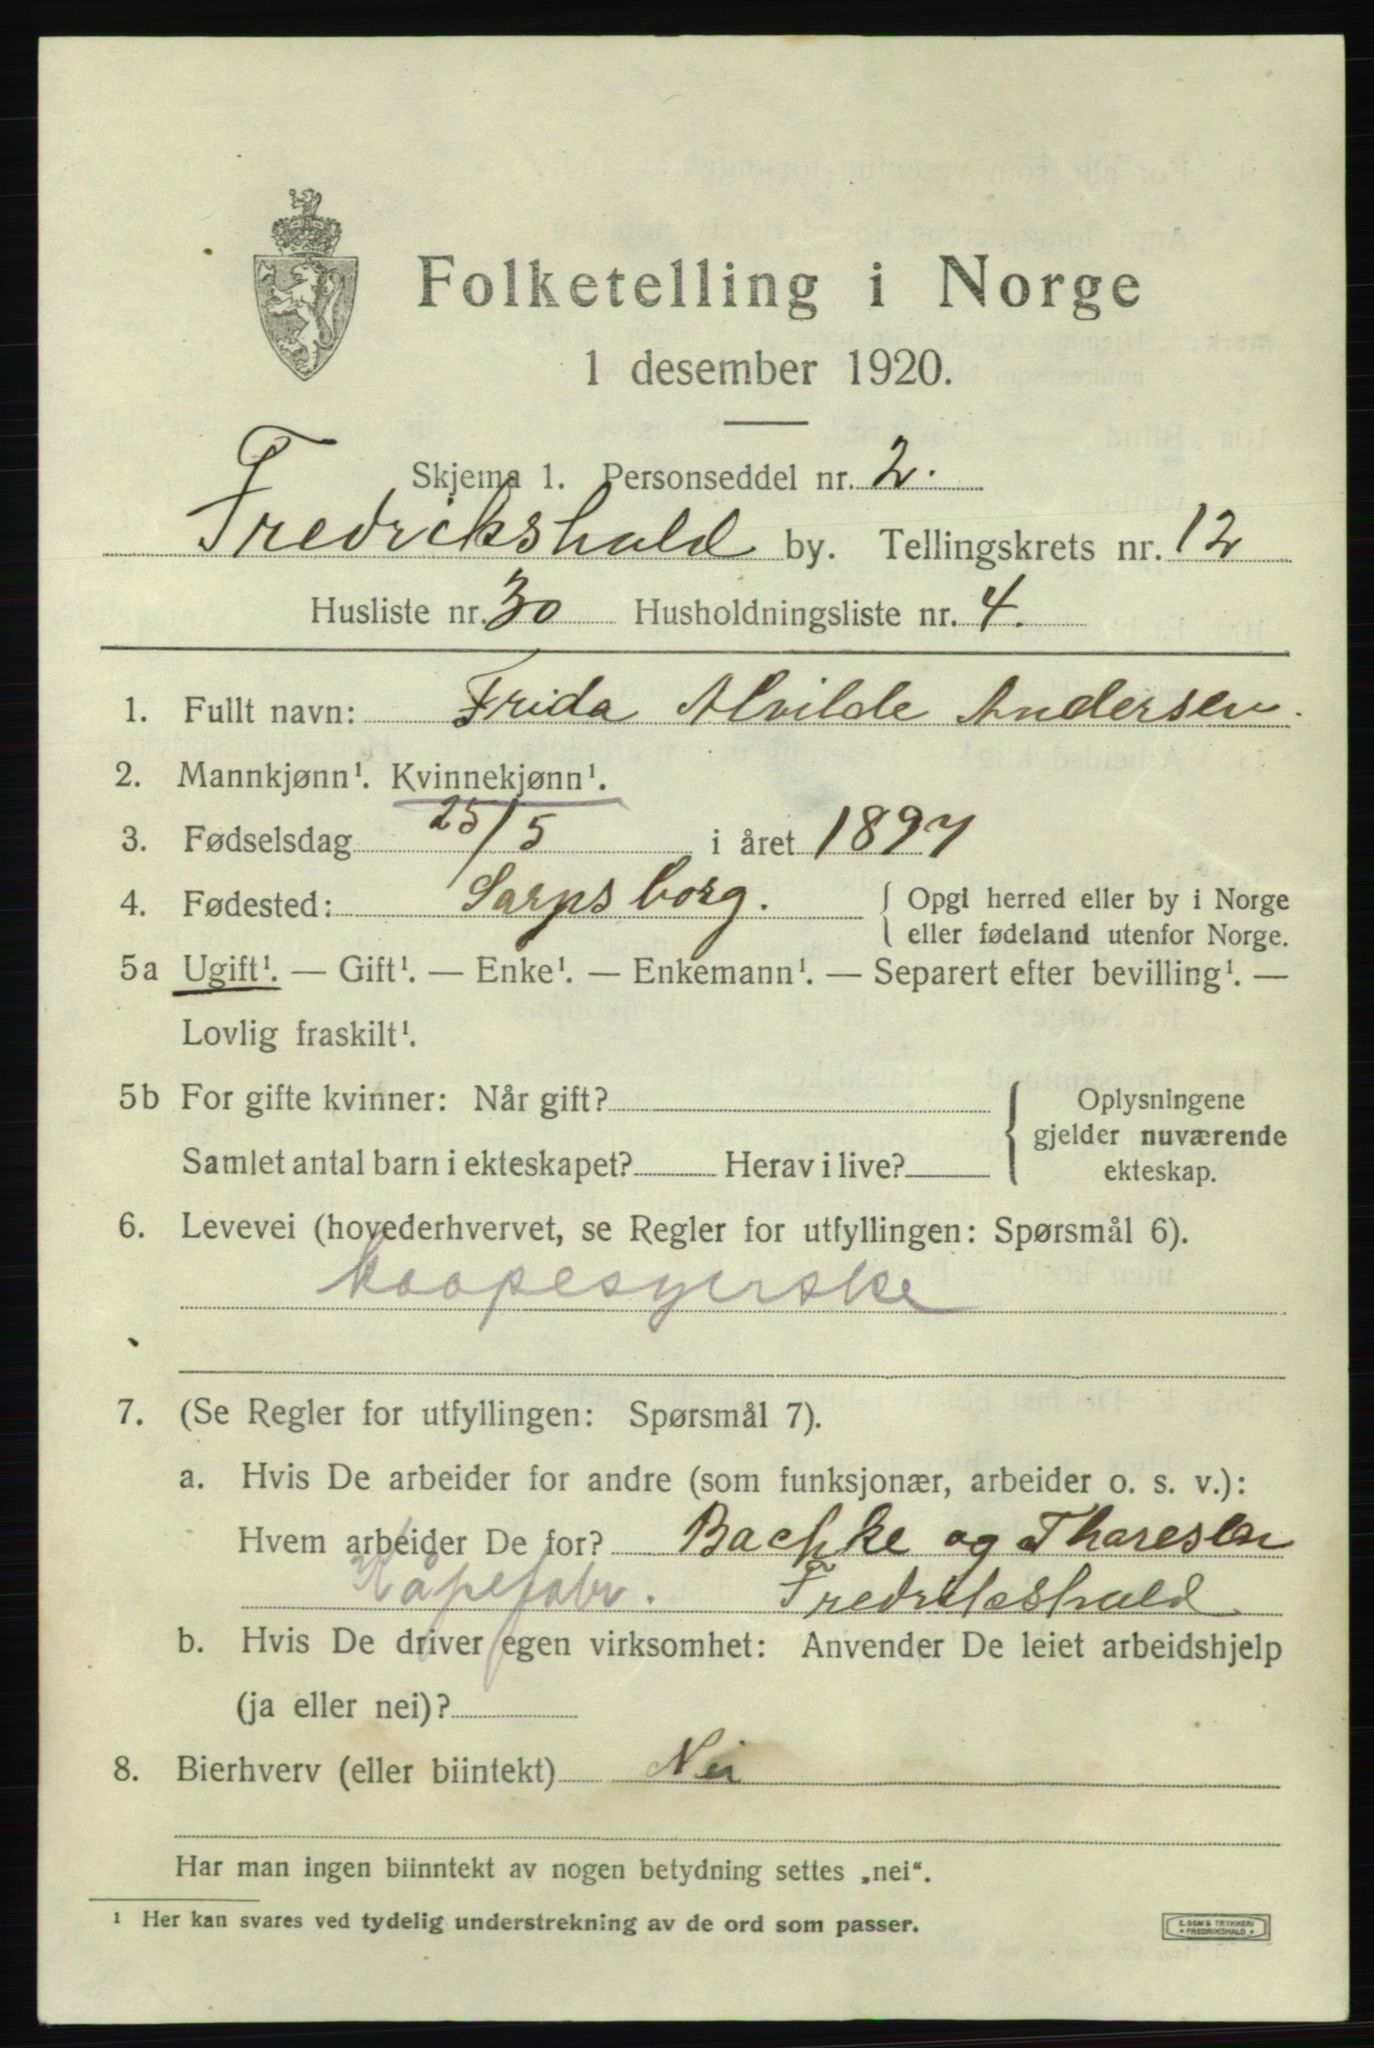 Folketelling i Norge
1 desember 1920.
Skjema 1. Personseddel nr. 2.
Fredrikshald by. Tellingskrets nr. 12
Husliste nr. 30 Husholdningsliste nr. 4.
1. Fullt navn: Frida Alvilde Andersen.
2. Mannkjønn¹. Kvinnekjønn¹.
3. Fødselsdag 25/5 i året 1897
4. Fødested: Sarpsborg. { Opgi herred eller by i Norge
eller fødeland utenfor Norge.
5a Ugift¹. — Gift¹. — Enke¹. — Enkemann¹. — Separert efter bevilling¹. —
Lovlig fraskilt¹.
5b For gifte kvinner: Når gift?
Samlet antal barn i ekteskapet? Herav i live?
{ Oplysningene
gjelder nuværende
ekteskap.
6. Levevei (hovederhvervet, se Regler for utfyllingen: Spørsmål 6).
kaapesyerske
7. (Se Regler for utfyllingen: Spørsmål 7).
a. Hvis De arbeider for andre (som funksjonær, arbeider o. s. v.):
Hvem arbeider De for? Bachke og Thoresen
Kåpefabr. Fredrikshald
b. Hvis De driver egen virksomhet: Anvender De leiet arbeidshjelp
(ja eller nei)?
8. Bierhverv (eller biintekt) Nei
Har man ingen biinntekt av nogen betydning settes „nei“.
¹ Her kan svares ved tydelig understrekning av de ord som passer.
E. SEM'S TRYKKERI
• FREDRIKSHALD •